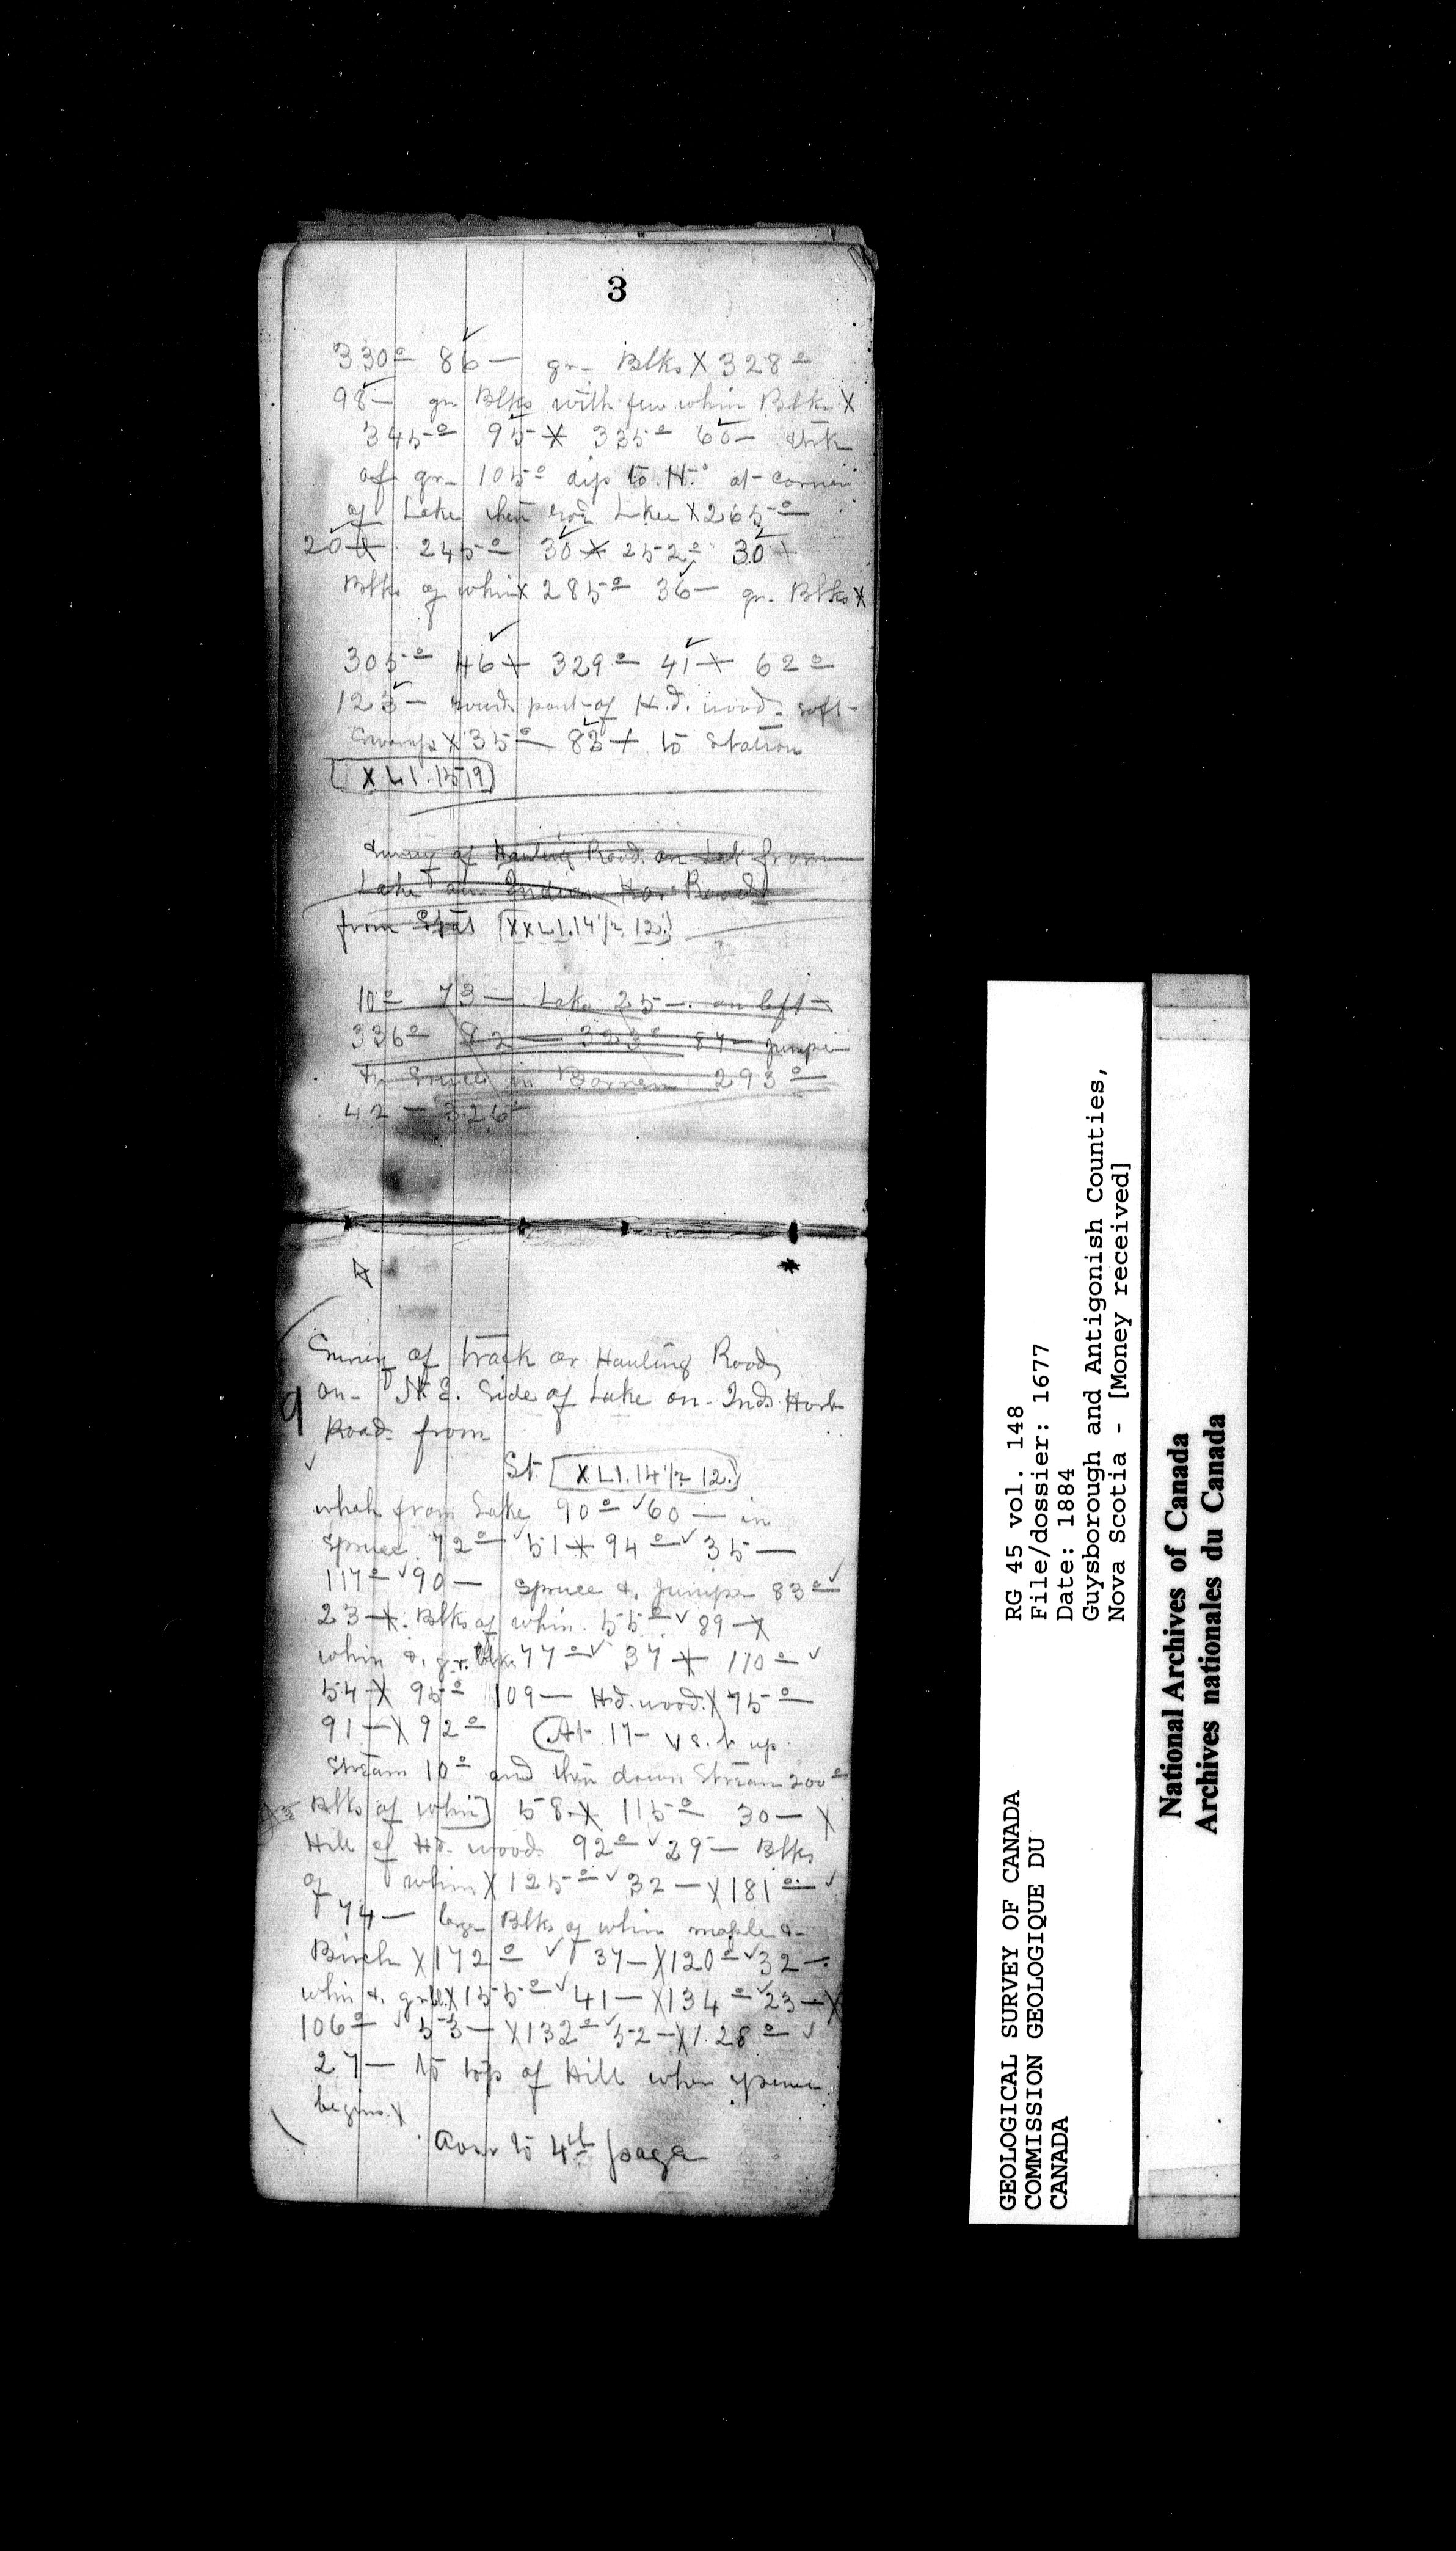 3
330° 86 — gr. Blks X 328°
98 — gr Blks with few whin Blks X
345° 95 X 335° 60 —
of gr. 105° dip to N.° at corner
of Lake then Lake X 265°
20 X 245° 30 X 252° 30 X
Blks of whin X 285° 36 — gr. Blks X
305° 46 X 329° 41 X 62°
123 — part of H.d. wood. soft
Swamp X 35° 83 X to Station
XLI.15 19
Survey of Hauling Road on from
Lake on Indian Har Road
from Stat XXLI.14 1/2 12.
10° 73 — Lake 25 — on left
336° 82 — 323° 87 — juniper
& Spruce in Barren 293°
42 — 326°
Survey of track or Hauling Road
on N.E. Side of Lake on Ind. Harb
9
Road from
St. XLI.14 1/2 12.
from Lake 90° 60 — in
Spruce 72° 51 X 94° 35 —
117° 90 — Spruce & Juniper 83°
23 X. Blks of whin. 55° 89 X
whin & gr. Blks 77° 37 X 170°
54 X 95° 109 — Hd. wood. X 75°
91 — X 92° (At 17 — up
Stream 10° and then down Stream 200°
Blks of whin] 58 X 115° 30 — X
Hill of Hd. wood 92° 29 — Blks
of whin X 125° 32 — X 181°
74 — large Blks of whin maple &
Birch X 172° 37 — X 120° 32 —
whin & gr. X 155° 41 — X 134° 23 — X
106° 53 — X 132° 52 — X 128°
27 — to top of Hill when
begins X
Over to 4th page
GEOLOGICAL SURVEY OF CANADA
COMMISSION GEOLOGIQUE DU
CANADA
RG 45 vol. 148
File/dossier: 1677
Date: 1884
Guysborough and Antigonish Counties,
Nova Scotia - [Money received]
National Archives of Canada
Archives nationales du Canada